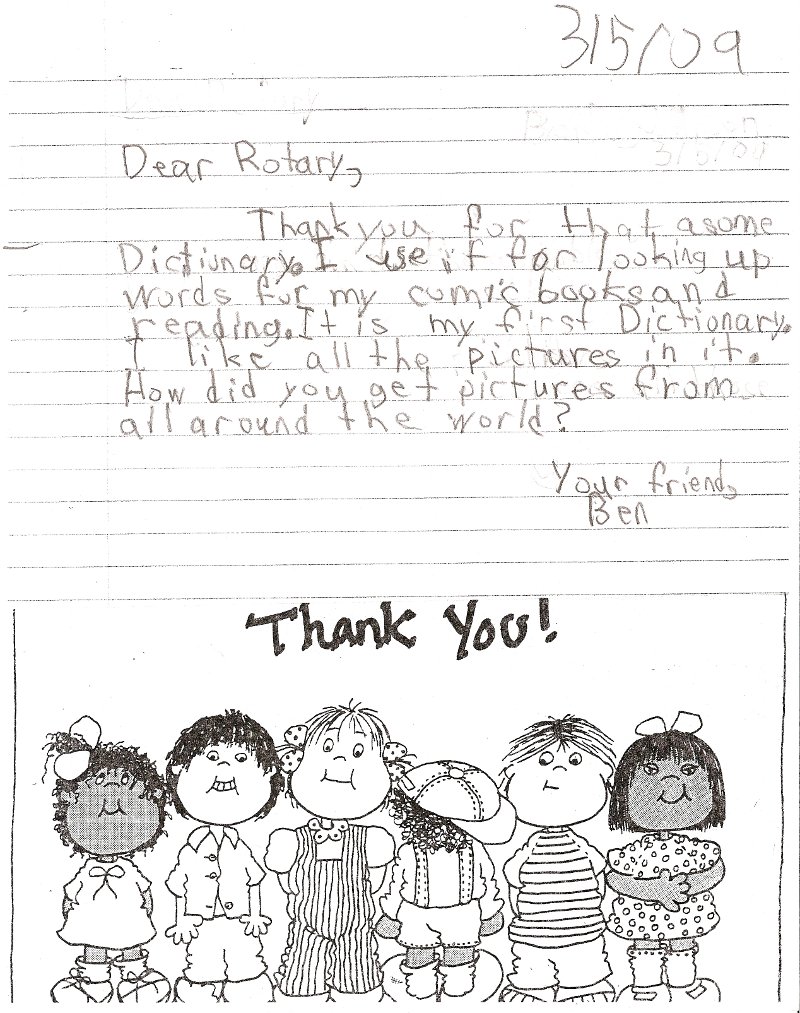 3/5/09
Dear Rotary,
Thank you for that asome
Dictionary. I use it for looking up
words for my comic books and
reading. It is my first Dictionary.
I like all the pictures in it.
How did you get pictures from
all around the world?
Your friend,
Ben
Thank You!